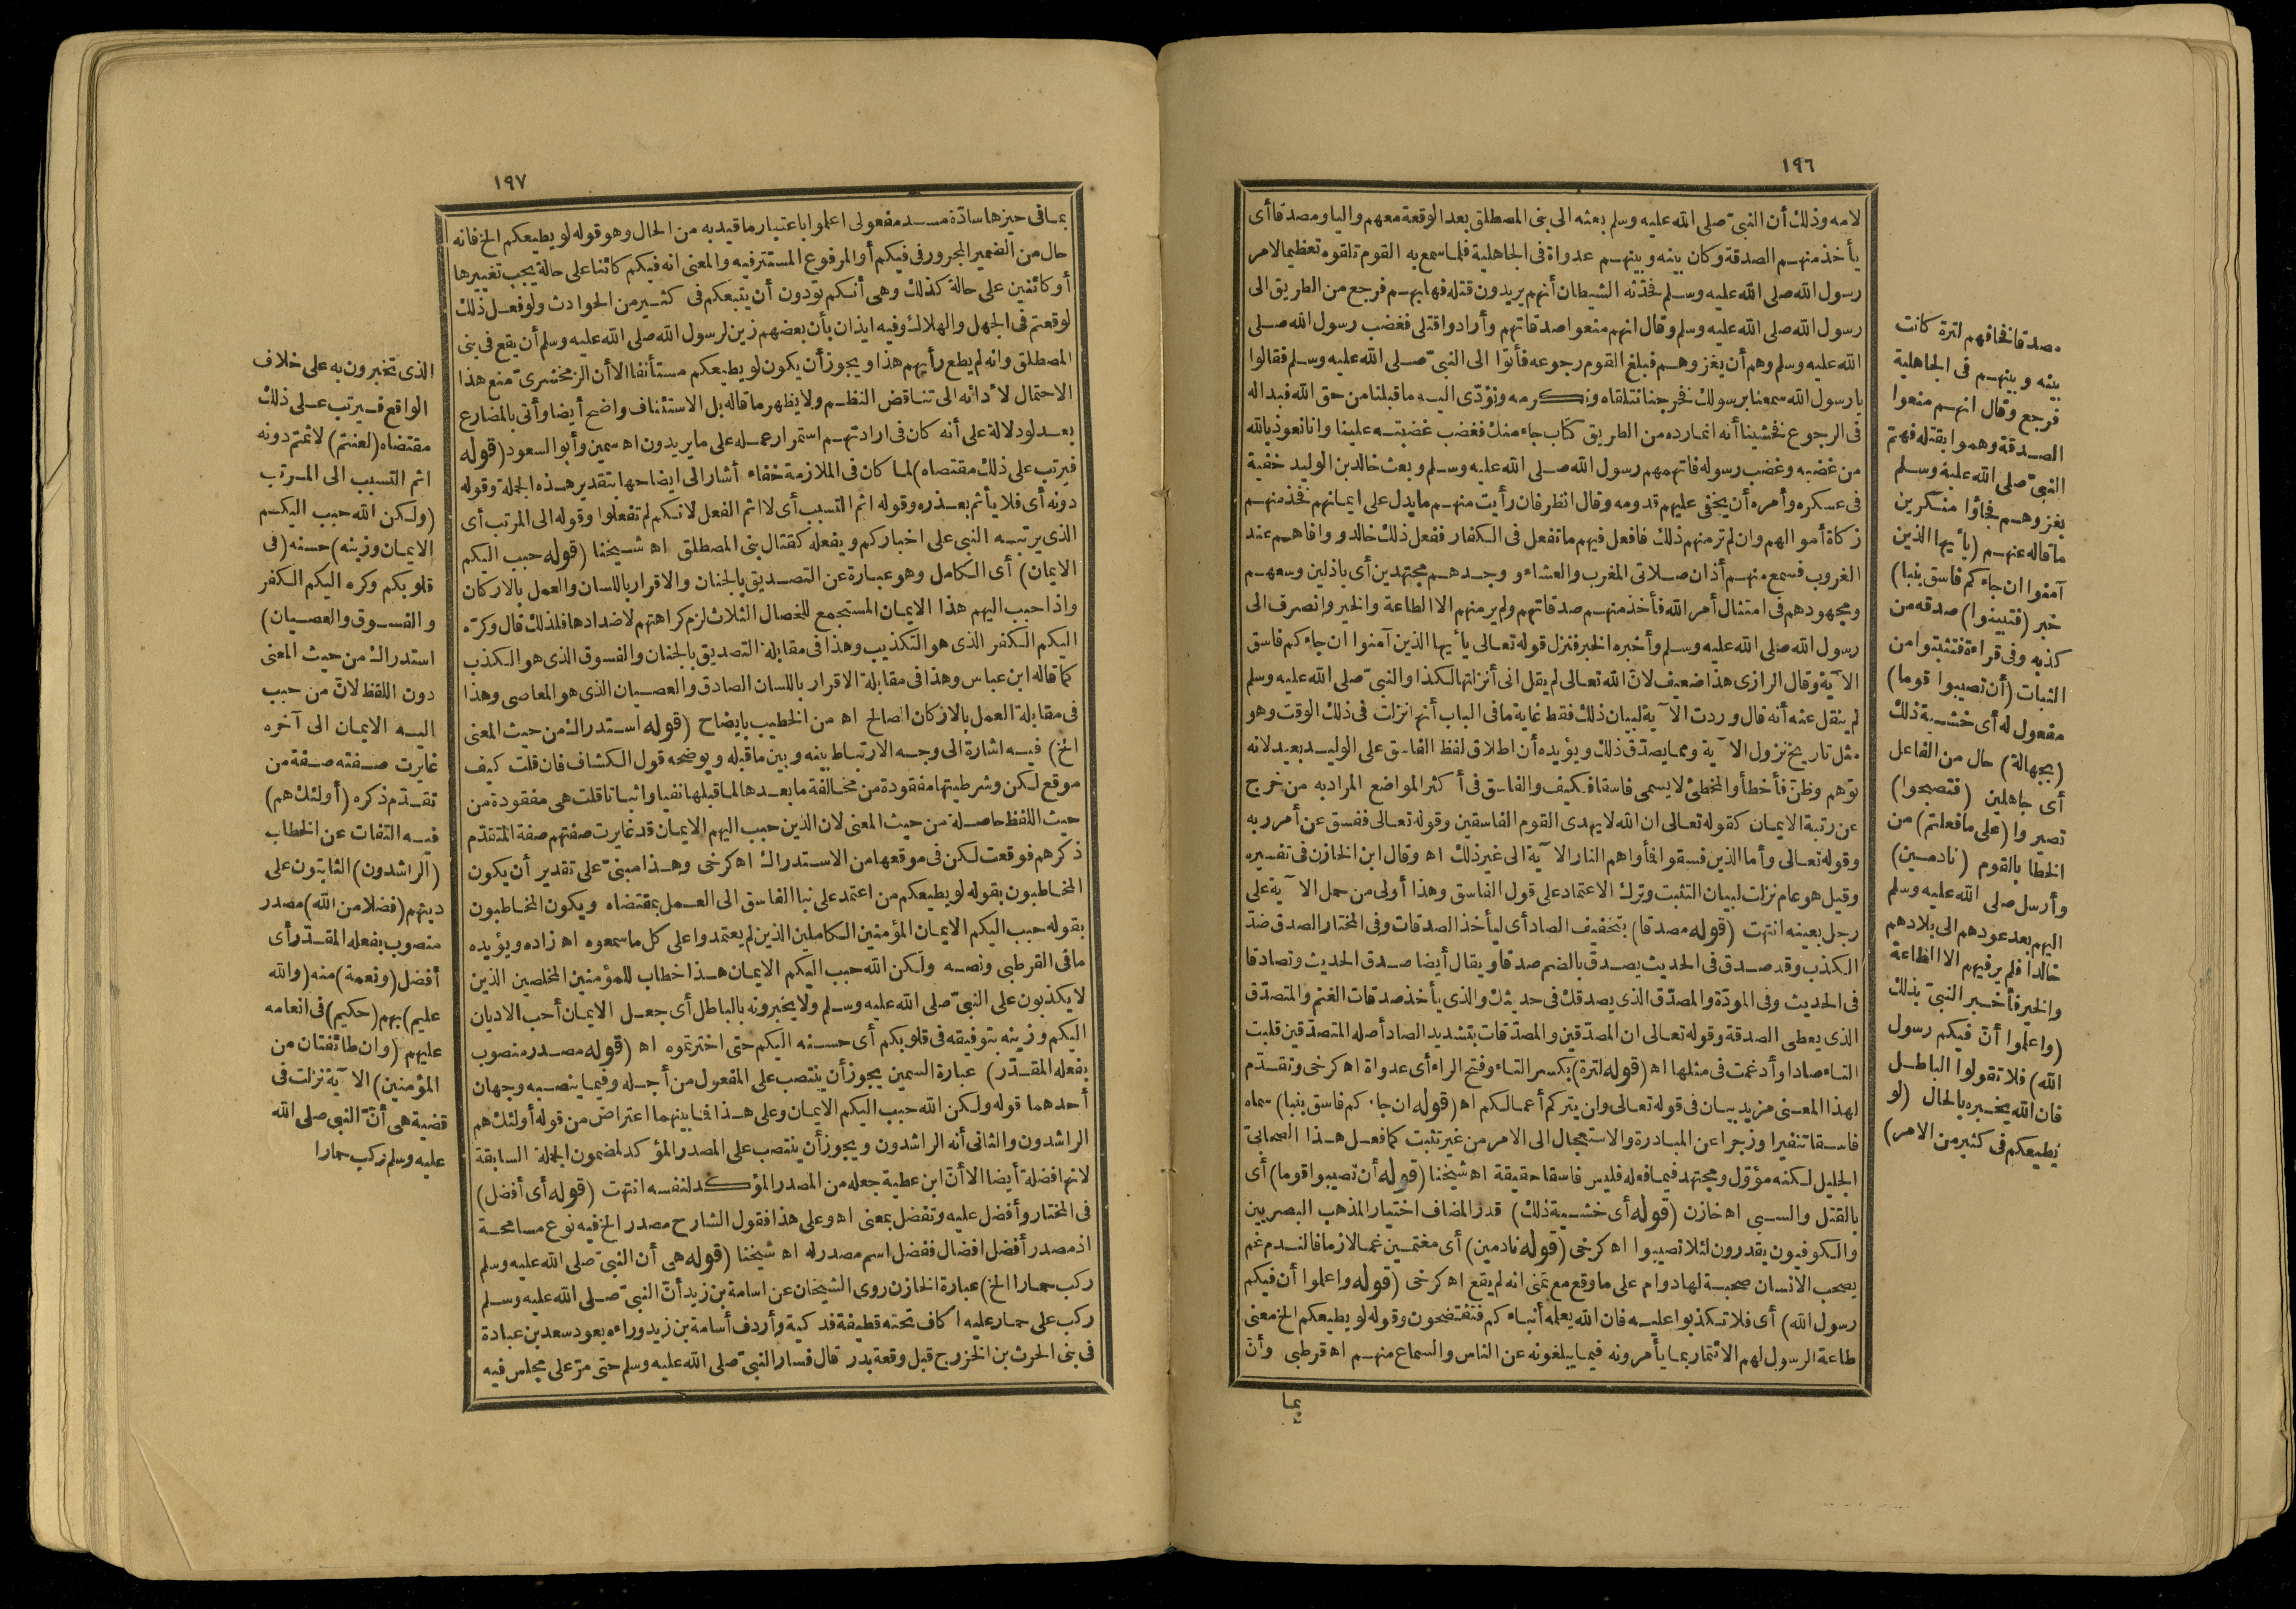 ١٩٦
لامه وذلك أن النبيّ صلى الله عليه وسلم بعثه الى بنى المصطلق بعد الوقعة معهم واليا ومصدقا أى
يأخذ منهم الصدقة وكان بينه وبينهم عدواة فى الجاهلية فلما سمع به القوم تلقوه تعظيما لامر
رسول الله صلى الله عليه وسلم فحدّثه الشيطان أنهم يريدون قتله فهابهم فرجع من الطريق الى
رسول الله صلى الله عليه وسلم وقال انهم منعوا صدقاتهم وأرادوا قتلى فغضب رسول الله صلى
الله عليه وسلم وهم أن يغزوهم فبلغ القوم رجوعه فأتوا الى النبىّ صلى الله عليه وسلم فقالوا
يا رسول الله سمعنا برسولك فخرجنا نتلقاه ونكرمه ونؤدّى اليه ما قبلنا من حق الله فبدا له
فى الرجوع فخشينا أنه انما رده من الطريق كتاب جاء منك فغضب غضبته علينا وانا نعوذ بالله
من غضبه وغضب رسوله فاتهمهم رسول الله صلى الله عليه وسلم وبعث خالد بن الوليد خفية
فى عسكره وأمره أن يخفى عليهم قدومه وقال انظر فان رأيت منهم ما يدل على ايمانهم فخذ منهم
زكاة أموالهم وان لم تر منهم ذلك فافعل فيهم ما تفعل فى الكفار ففعل ذلك خالد ووافاهم عند
الغروب فسمع منهم أذان صلاتى المغرب والعشاء ووجدهم مجتهدين أى باذلين وسعهم
ومجهودهم فى امتثال أمر الله فأخذ منهم صدقاتهم ولم ير منهم الا الطاعة والخير وانصرف الى
رسول الله صلى الله عليه وسلم وأخبره الخبر فنزل قوله تعالى يأيها الذين آمنوا ان جاءكم فاسق
الآية وقال الرازى هذا ضعيف لان الله تعالى لم يقل انى أنزلتها لكذا والنبىّ صلى الله عليه وسلم
لم ينقل عنه أنه قال وردت الآية لبيان ذلك فقط غاية ما فى الباب أنها نزلت فى ذلك الوقت وهو
مثل تاريخ نزول الآية ومما يصدّق ذلك ويؤيده أن اطلاق لفظ الفاسق على الوليد بعيد لانه
توهم وظنّ فأخطأ والمخطئ لا يسمى فاسقا فكيف والفاسق فى أكثر المواضع المراد به من خرج
عن رتبة الايمان كقوله تعالى ان الله لا يهدى القوم الفاسقين وقوله تعالى ففسق عن أمر ربه
وقوله تعالى وأما الذين فسقوا فأواهم النار الآية الى غير ذلك اه وقال ابن الخازن فى تفسيره
وقيل هو عام نزلت لبيان التثبت وترك الاعتماد على قول الفاسق وهذا أولى من حمل الآية على
رجل بعينه انتهت (قوله مصدقا) بتخفيف الصاد أى ليأخذ الصدقات وفى المختار الصدق ضدّ
الكذب وقد صدق فى الحديث يصدق بالضم صدقا ويقال أيضا صدق الحديث وتصادقا
فى الحديث وفى المودّة والمصدّق الذى يصدقك فى حديثك والذى يأخذ صدقات الغنم والمتصدّق
الذى يعطى الصدقة وقوله تعالى ان المصدّقين والمصدّقات بتشديد الصاد أصله المتصدّقين قلبت
التاء صادا وأدغمت فى مثلها اه (قوله لترة) بكسر التاء وفتح الراء أى عدواة اه كرخى وتقدّم
لهذا المعنى مزيد بيان فى قوله تعالى وان يتركم أعمالكم اه (قوله ان جاءكم فاسق بنبا) سماه
فاسقا تنفيرا وزجرا عن المبادرة والاستعجال الى الامر من غير تثبت كما فعل هذا الصحابىّ
الجليل لكنه مؤوّل ومجتهد فيما فعله فليس فاسقا حقيقة اه شيخنا (قوله أن تصيبوا قوما) أى
بالقتل والسبى اه خازن (قوله أى خشية ذلك) قدر المضاف اختيار المذهب البصريين
والكوفيون يقدرون لئلا تصيبوا اه كرخى (قوله نادمين) أى مغتمين غما لازما فالندم غم
يصحب الانسان صحبة لها دوام على ما وقع مع تمنى انه لم يقع اه كرخى (قوله واعلموا أن فيكم
رسول الله) أى فلا تكذبوا عليه فان الله يعلمه أنباءكم فتفتضحون وقوله لو يطيعكم الخ معنى
طاعة الرسول لهم الائتمار بما يأمرونه فيما يبلغونه عن الناس والسماع منهم اه قرطبى وأنّ
بما
مصدقا فخافهم لترة كانت
بينه وبينهم فى الجاهلية
فرجع وقال انهم منعوا
الصدقة وهموا بقتله فهمّ
النبىّ صلى الله عليه وسلم
بغزوهم فجاؤا منكرين
ما قاله عنهم (يأيها الذين
آمنوا ان جاءكم فاسق بنبا)
خبر (فتبينوا) صدقه من
كذبه وفى قراءة فتثبتوا من
الثبات (أن تصيبوا قوما)
مفعول له أى خشية ذلك
(بجهالة) حال من الفاعل
أى جاهلين (فتصبحوا)
تصيروا (على ما فعلتم) من
الخطا بالقوم (نادمين)
وأرسل صلى الله عليه وسلم
اليهم بعد عودهم الى بلادهم
خالدا فلم ير فيهم الا الطاعة
والخير فأخبر النبىّ بذلك
(واعلموا أنّ فيكم رسول
الله) فلا تقولوا الباطل
فان الله يخبره بالحال (لو
يطيعكم فى كثير من الامر)
١٩٧
بما فى حيزها سادّة مسد مفعولى اعلموا باعتبار ما قيد به من الحال وهو قوله لو يطيعكم الخ فانه
حال من الضمير المجرور فى فيكم أو المرفوع المستتر فيه والمعنى انه فيكم كائنا على حالة يجب تغييرها
أو كائنين على حالة كذلك وهى أنكم تودون أن يتبعكم فى كثير من الحوادث ولو فعل ذلك
لوقعتم فى الجهل والهلاك وفيه ايذان بأن بعضهم زين لرسول الله صلى الله عليه وسلم أن يقع فى بنى
المصطلق وانه لم يطع رأيهم هذا ويجوز أن يكون لو يطيعكم مستأنفا الا أن الزمخشرى منع هذا
الاحتمال لادائه الى تناقض النظم ولا يظهر ما قاله بل الاستئناف واضح أيضا وأتى بالمضارع
بعد لو دلالة على أنه كان فى ارادتهم استمرار عمله على ما يريدون اه سمين وأبو السعود (قوله
فيرتب على ذلك مقتضاه) لما كان فى الملازمة خفاء أشار الى ايضاحها بتقدير هذه الجملة وقوله
دونه أى فلا يأثم بعذره وقوله اثم التسبب أى لا اثم الفعل لانكم لم تفعلوا وقوله الى المرتب أى
الذى يرتبه النبى على اخباركم ويفعله كقتال بنى المصطلق اه شيخنا (قوله حبب اليكم
الايمان) أى الكامل وهو عبارة عن التصديق بالجنان والاقرار باللسان والعمل بالاركان
واذا حبب اليهم هذا الايمان المستجمع للخصال الثلاث لزم كراهتهم لاضدادها فلذلك قال وكرّه
اليكم الكفر الذى هو التكذيب وهذا فى مقابلة التصديق بالجنان والفسوق الذى هو الكذب
كما قاله ابن عباس وهذا فى مقابلة الاقرار باللسان الصادق والعصيان الذى هو المعاصى وهذا
فى مقابلة العمل بالاركان الصالح اه من الخطيب بايضاح (قوله استدراك من حيث المعنى
الخ) فيه اشارة الى وجه الارتباط بينه وبين ما قبله ويوضحه قول الكشاف فان قلت كيف
موقع لكن وشرطيتها مفقودة من مخالفة ما بعدها لما قبلها نفيا واثباتا قلت هى مفقودة من
حيث اللفظ حاصلة من حيث المعنى لان الذين حبب اليهم الايمان قد غايرت صفتهم صفة المتقدّم
ذكرهم فوقعت لكن فى موقعها من الاستدراك اه كرخى وهذا مبنىّ على تقدير أن يكون
المخاطبون بقوله لو يطيعكم من اعتمد على نبا الفاسق الى العمل بمقتضاه ويكون المخاطبون
بقوله حبب اليكم الايمان المؤمنين الكاملين الذين لم يعتمدوا على كل ما سمعوه اه زاده ويؤيده
ما فى القرطبى ونصه ولكن الله حبب اليكم الايمان هذا خطاب للمؤمنين المخلصين الذين
لا يكذبون على النبىّ صلى الله عليه وسلم ولا يخبرونه بالباطل أى جعل الايمان أحب الاديان
اليكم وزينه بتوفيقه فى قلوبكم أى حسنه اليكم حتى اخترتموه اه (قوله مصدر منصوب
بفعله المقدّر) عبارة السمين يجوز أن ينتصب على المفعول من أجله وفيما ينصبه وجهان
أحدهما قوله ولكن الله حبب اليكم الايمان وعلى هذا فما بينهما اعتراض من قوله أولئك هم
الراشدون والثانى أنه الراشدون ويجوز أن ينتصب على المصدر المؤكد لمضمون الجملة السابقة
لانها فضلة أيضا الا أنّ ابن عطية جعله من المصدر المؤكد لنفسه انتهت (قوله أى أفضل)
فى المختار وأفضل عليه وتفضل بمعنى اه وعلى هذا فقول الشارح مصدر الخ فيه نوع مسامحة
اذ مصدر أفضل افضال ففضل اسم مصدر له اه شيخنا (قوله هى أن النبىّ صلى الله عليه وسلم
ركب حمارا الخ) عبارة الخازن روى الشيخان عن اسامة بن زيد أنّ النبىّ صلى الله عليه وسلم
ركب على حمار عليه اكاف تحته قطيفة فدكية وأردف أسامة بن زيد وراءه يعود سعد بن عبادة
فى بنى الحرث بن الخزرج قبل وقعة بدر قال فسار النبىّ صلى الله عليه وسلم حتى مرّ على مجلس فيه
الذى تخبرون به على خلاف
الواقع فيرتب على ذلك
مقتضاه (لعنتم) لاثمتم دونه
اثم التسبب الى المرتب
(ولكن الله حبب اليكم
الايمان وزينه) حسنه (فى
قلوبكم وكره اليكم الكفر
والفسوق والعصيان)
استدراك من حيث المعنى
دون اللفظ لانّ من حبب
اليه الايمان الى آخره
غايرت صفته صفة من
تقدّم ذكره (أولئك هم)
فيه التفات عن الخطاب
(الراشدون) الثابتون على
دينهم (فضلا من الله) مصدر
منصوب بفعله المقدّر أى
أفضل (ونعمة) منه (والله
عليم) بهم (حكيم) فى انعامه
عليهم (وان طائفتان من
المؤمنين) الآية نزلت فى
قضية هى أنّ النبى صلى الله
عليه وسلم ركب حمارا